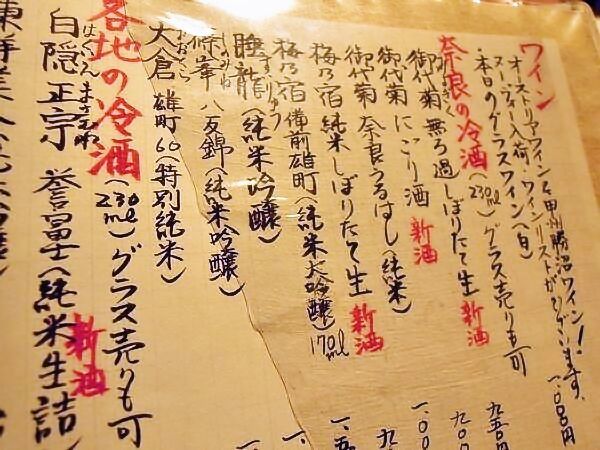 ワイン
オーストリアワインと甲州勝沼ワイン!
ヌーヴォー入荷・ワインリストがございます。
・本日のグラスワイン(白)
一.〇〇〇円
奈良の冷酒(230ml)グラス売りも可
九五〇円
みよきく
御代菊 無ろ過しぼりたて生 新酒
御代菊 にごり酒 新酒
御代菊 奈良うるはし(純米)
梅乃宿 純米しぼりたて生 新酒
梅乃宿 備前雄町(純米大吟醸)170ml
すいりゅう
睡龍(純米吟醸)
篠峯 八反錦(純米吟醸)
おおくら
大倉 雄町60(特別純米)
各地の冷酒(230ml)グラス売りも可
はくいんまさむね
白隠正宗 誉富士(純米生詰) 新酒